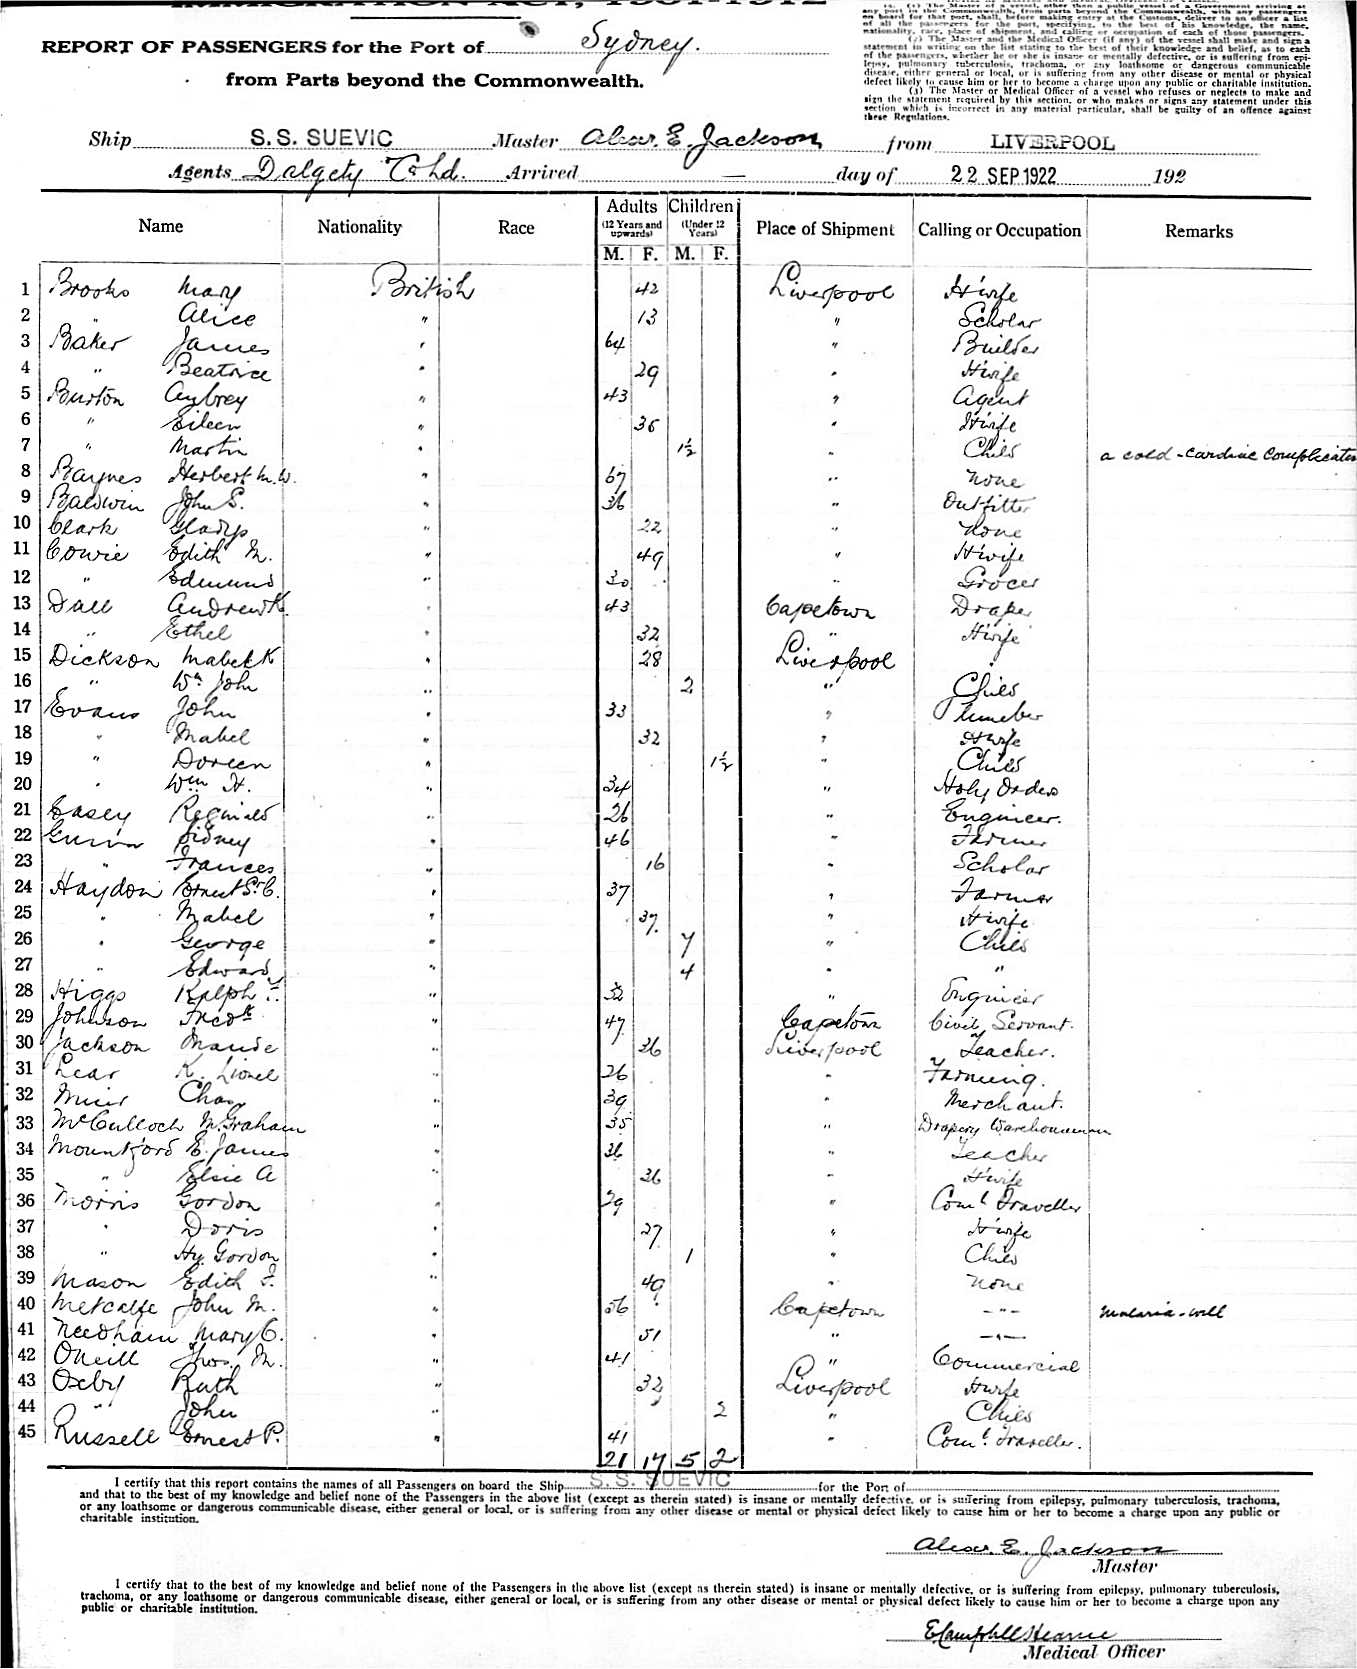 IMMIGRATION ACT, 1901-1912
REPORT OF PASSENGERS for the Port of Sydney.
from Parts beyond the Commonwealth.
14. (1) The Master of a vessel, other than a public vessel of a Government arriving at
any port in the Commonwealth, from parts beyond the Commonwealth, with any passengers
on board for that port, shall, before making entry at the Customs, deliver to an officer a list
of all the passengers for the port, specifying, to the best of his knowledge, the name,
nationality, race, place of shipment, and calling or occupation of each of those passengers.
(2) The Master and the Medical Officer (if any) of the vessel shall make and sign a
statement in writing on the list stating to the best of their knowledge and belief, as to each
of the passengers, whether he or she is insane or mentally defective, or is suffering from epi-
lepsy, pulmonary tuberculosis, trachoma, or any loathsome or dangerous communicable
disease, either general or local, or is suffering from any other disease or mental or physical
defect likely to cause him or her to become a charge upon any public or charitable institution.
(3) The Master or Medical Officer of a vessel who refuses or neglects to make and
sign the statement required by this section, or who makes or signs any statement under this
section which is incorrect in any material particular, shall be guilty of an offence against
these Regulations.
Ship S.S. SUEVIC Master Alexr. E. Jackson from LIVERPOOL
Agents Dalgety & Co Ltd. Arrived — day of 22 SEP 1922 192
Name Nationality Race Adults (12 Years and upwards) Children (Under 12 Years) Place of Shipment Calling or Occupation Remarks
M. F. M. F.
1 Brooks Mary British 42 Liverpool H'wife
2 " Alice " 13 " Scholar
3 Baker James " 64 " Builder
4 " Beatrice " 29 " H'wife
5 Burton Aubrey " 43 " Agent
6 " Eileen " 36 " H'wife
7 " Martin " 1½ " Child a cold - cardiac complication
8 Baynes Herbert M. W. " 67 " None
9 Baldwin John S. " 36 " Outfitter
10 Clark Gladys " 22 " None
11 Cowie Edith M. " 49 " H'wife
12 " Edmund " 30 " Grocer
13 Dall Andrew K. " 43 Capetown Draper
14 " Ethel " 32 " H'wife
15 Dickson Mabel K " 28 Liverpool "
16 " Wm John " 2 " Child
17 Evans John " 33 " Plumber
18 " Mabel " 32 " H'wife
19 " Doreen " 1½ " Child
20 " Wm H. " 34 " Holy Orders
21 Easey Reginald " 26 " Engineer.
22 Sidney " 46 " Farmer
23 " Frances " 16 " Scholar
24 Haydon Ernest St. C. " 37 " Farmer
25 " Mabel " 37 " H'wife
26 " George " 7 " Child
27 " Edward " 4 " "
28 Higgs Ralph " 32 " Engineer
29 Johnson Fredk " 47 Capetown Civil Servant.
30 Jackson Maude " 36 Liverpool Teacher.
31 Lear K. Lionel " 26 " Farming.
32 Muir Chas " 39 " Merchant.
33 McCulloch M. Graham " 35 " Drapery Warehouseman
34 Mountford E. James " 36 " Teacher
35 " Elsie A " 36 " H'wife
36 Morris Gordon " 29 " Coml Traveller
37 " Doris " 27 " H'wife
38 " Hy. Gordon " 1 " Child
39 Mason Edith F. " 49 " None
40 Metcalfe John M. " 56 Capetown -"- Malaria - well
41 Needham Mary C. " 51 " -"-
42 Oneill Thos. M. " 41 " Commercial
43 Oxby Ruth " 32 Liverpool H'wife
44 " John " 2 " Child
45 Russell Ernest P. " 41 " Coml. Traveller.
21 17 5 2
I certify that this report contains the names of all Passengers on board the Ship S.S. SUEVIC for the Port of
and that to the best of my knowledge and belief none of the Passengers in the above list (except as therein stated) is insane or mentally defective, or is suffering from epilepsy, pulmonary tuberculosis, trachoma,
or any loathsome or dangerous communicable disease, either general or local, or is suffering from any other disease or mental or physical defect likely to cause him or her to become a charge upon any public or
charitable institution.
Alexr. E. Jackson
Master
I certify that to the best of my knowledge and belief none of the Passengers in the above list (except as therein stated) is insane or mentally defective, or is suffering from epilepsy, pulmonary tuberculosis,
trachoma, or any loathsome or dangerous communicable disease, either general or local, or is suffering from any other disease or mental or physical defect likely to cause him or her to become a charge upon any
public or charitable institution.
E Campbell Hearne
Medical Officer